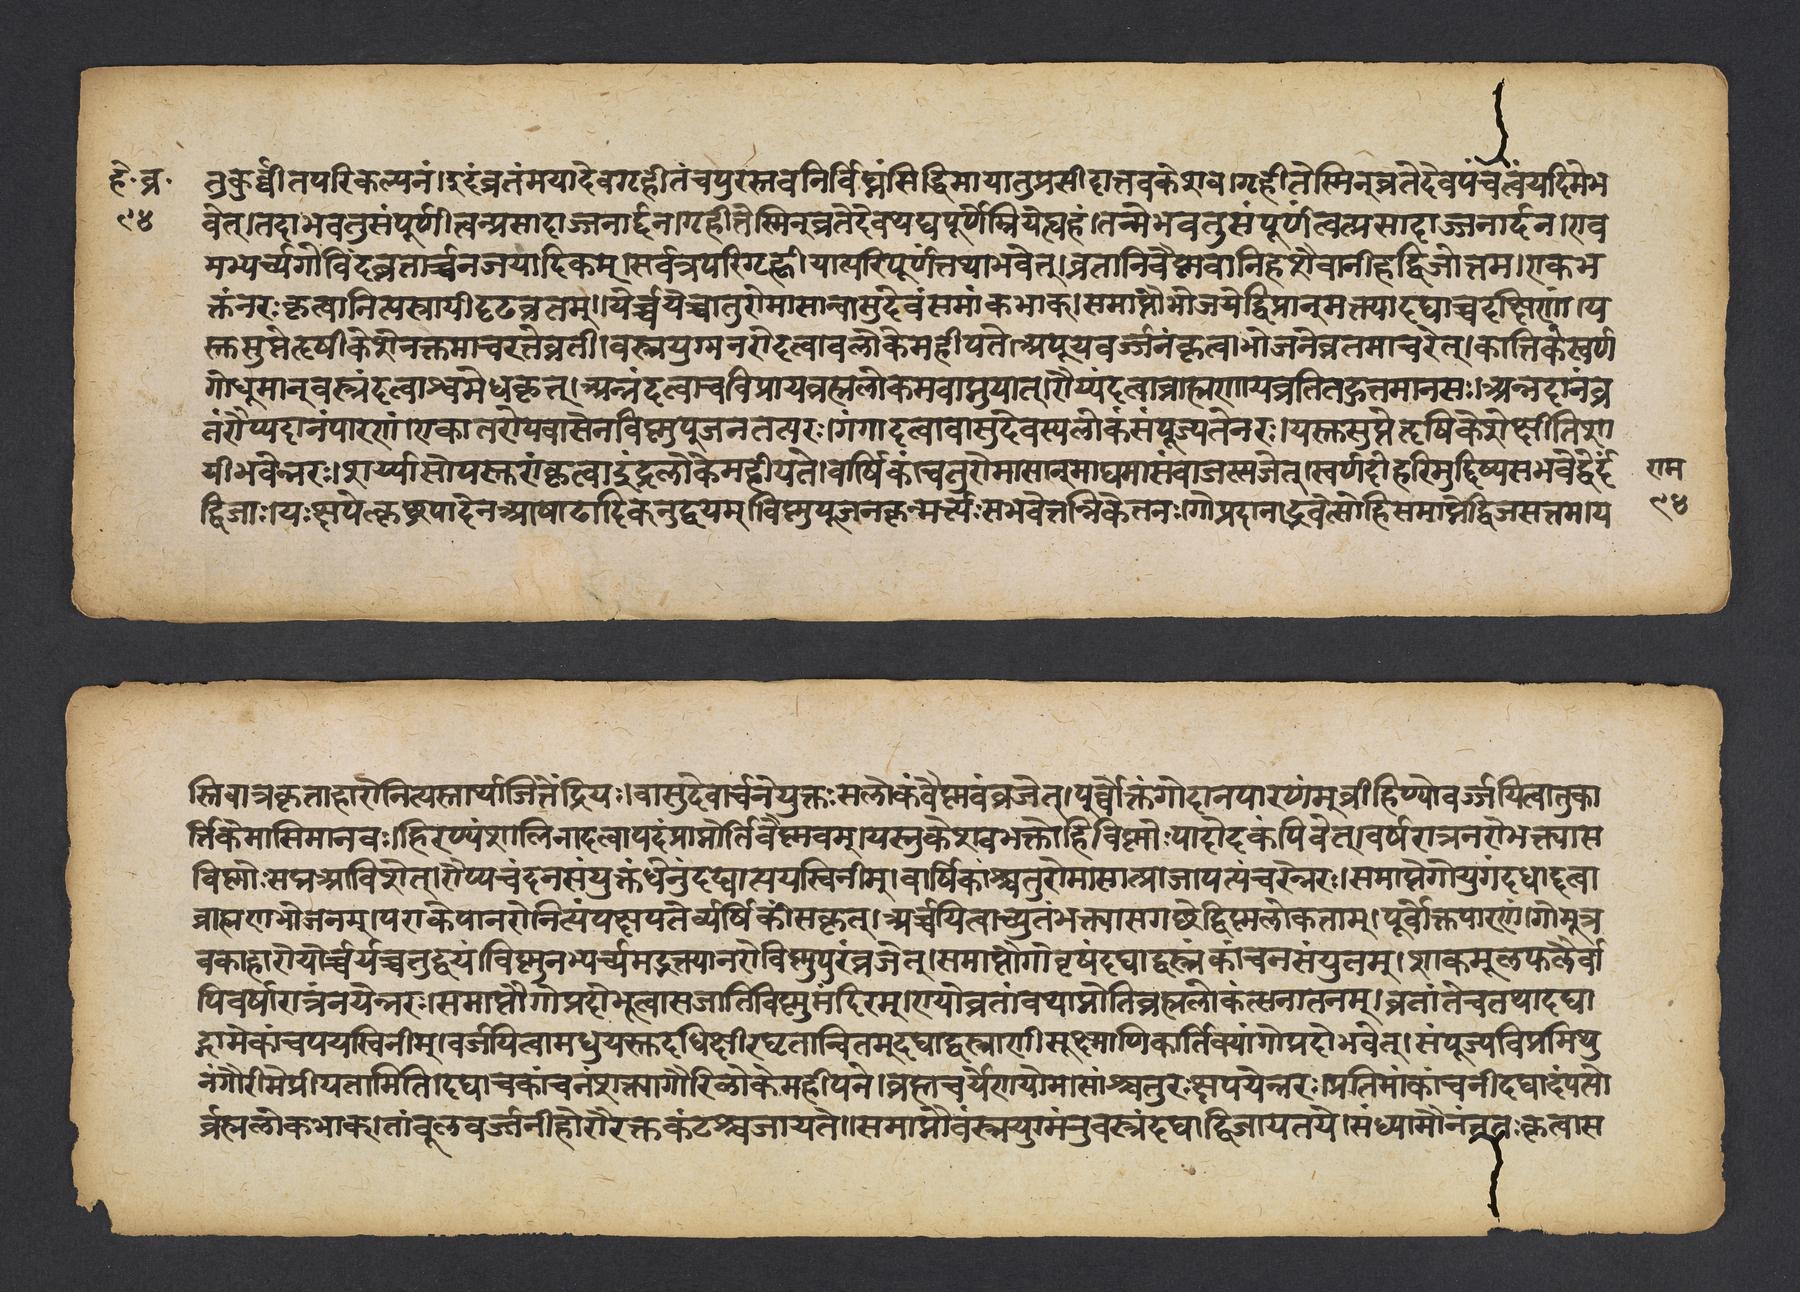 हे.व्र.
९४
नुकुर्व्वीतपरिकल्पनं।इदंव्रतंमयादेवगृहीतंचपुरस्तवनिर्विघ्नंसिद्धिमायातुप्रसीदात्तवकेशव।गृहीतेस्मिन्व्रतेदेवपंचत्वंयदिमेभ
वेत्।तदाभवतुसंपूर्णीत्वन्प्रसादाज्जनार्द्दन।गृहीतेस्मिन्व्रतेदेवयद्यपूर्णेम्रियेत्यहं।तन्मेभवतुसंपूर्णंत्वत्प्रसादाज्जनार्दन।एव
मभ्यर्च्यगोविंदव्रतार्च्चनजयादिकम्।सर्वत्रपरिगृह्णीयात्परिपूर्णंतथाभवेत्।व्रतानिवैष्णवानिहशैवानीहद्विजोत्तम।एकभ
क्तंनरःकृत्वानित्यस्नायीदृढव्रतम्।।योर्च्चयेच्चातुरोमासान्वासुदेवंसमांकभाक्।समाप्तौभोजयेद्विप्रान्मक्त्यादद्याच्चदक्षिणां।य
स्तसुप्तेहृषीकेशेनक्तमाचरतेव्रती।वस्त्रयुग्मनरोदत्वावलोकेमहीपते।अपूयवर्ज्जनंकृत्वाभोजनेव्रतमाचरेत्।कार्त्तिकेस्वर्ण
गोधूमान्वस्त्रंदत्वाश्वमेधकृत्।अन्नंदत्वाचविप्रायब्रह्मलोकमवाप्नुयात्।रौप्यंदत्वाब्राह्मणायव्रतितद्गतमानसः।अन्नदानंव्र
तंरौप्यदानंपारणं।एकांतरोपवासेनविष्णुपुजनतत्परः।गंगादृत्वावासुदेवस्यलोकंसंपूज्यतेनरः।यस्तसुप्तेहृषिकेशेक्षीतिशा
यीभवेन्नरः।शर्य्यासोपस्तरांकृत्वाइंद्रलोकेमहीयते।वार्षिकांचतुरोमासान्माघमासंवाजत्सजेत्।स्वर्णदोहरिमुद्दिष्यसभवेद्वेर्द
द्विजाः।यःक्षपेत्कृछ्रपादेनआषाढादिकनुद्वयम्।विष्णुपूजनकृन्मर्त्यःसभवेत्तन्निकेतनः।गोप्रदानाद्रुवेत्सोहिसमाप्नेद्विजसत्तम।य
राम
९४
स्त्रिवात्रकृताहारोनित्यस्नार्याजितेंद्रियः।वासुदेवार्चनेयुक्तःसलोकंवैष्णवंव्रजेत्।पूर्व्वोक्तंगोदानपारणंम्व्रीहिण्योवर्ज्जयित्वातुका
र्त्तिकेमासिमानवः।हिरण्यंशालिनादत्वापदंप्राप्नोतिवैष्णवम्।यस्तुकेशवभक्तोहिविष्णोःपादोदकंपिवेत्।वर्षरात्रनरोभक्त्यास
विष्णोःसद्मआविशेत्।रौप्यचंदनसंयुक्तंधेनुंदद्यात्पयस्विनीम्।वार्षिकांश्चतुरोमासात्प्राजापत्यंचरेन्नरः।समाप्नेगोयुगंदद्यादूत्वा
ब्राह्मणभोजनम्।पराकेपानरोनित्यंपक्षपतेर्व्यर्षिकींसकृत्।अर्च्चयित्वाच्युतंभक्त्यासगछेद्विष्णलोकताम्।पूर्वोक्तपारणं।गोमूत्र
वकाहारोयोर्च्चर्यच्चनुद्वयं।विष्णुनभ्यर्च्यमद्रुत्तयानरोविष्णुपुरंव्रजेत्।समाप्तौगोवृषंदद्याद्वस्त्रंकांचनसंयुतम्।शाकमूलफलैर्वा
पिवर्षारात्रंनयेन्नरः।समाप्तौगोप्रदोभूत्वासजातिविष्णुमंदिरम्।एयोव्रतांवथाप्नोतिब्रह्मलोकंत्सनातनम्।व्रतांतेचतथादद्या
द्गामेकांचपयस्विनीम्।वर्जयित्वामधुयस्तदधिक्षीरघृतान्वितम्दद्याद्वस्त्राणीसूक्ष्माणिकार्तिक्यांगोप्रदोभवेत्।संपूज्यविप्रमिथु
नंगौरीमेप्रीयतामिति।दद्याचकांचनंशक्त्यागौरिलोकेमहीपते।ब्रह्मचर्येणयोमासांश्चतुरःक्षपयेन्नरः।प्रतिमांकांचनीदद्यादंपसो
र्ब्रह्मलोकभाक्।तांवूलवर्ज्जनीहोरोरक्तकंटश्चजायते।।समाप्तौवंस्त्रयुग्मंनुवस्त्रंदद्याद्विजायतये।संध्यामौनंनृतःकृत्वास